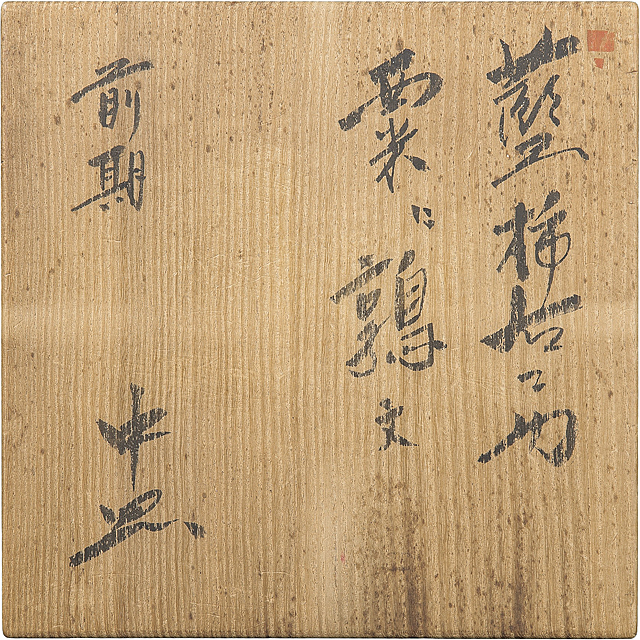 藍柿右ヱ門
粟ニ鶉文
前期 中皿